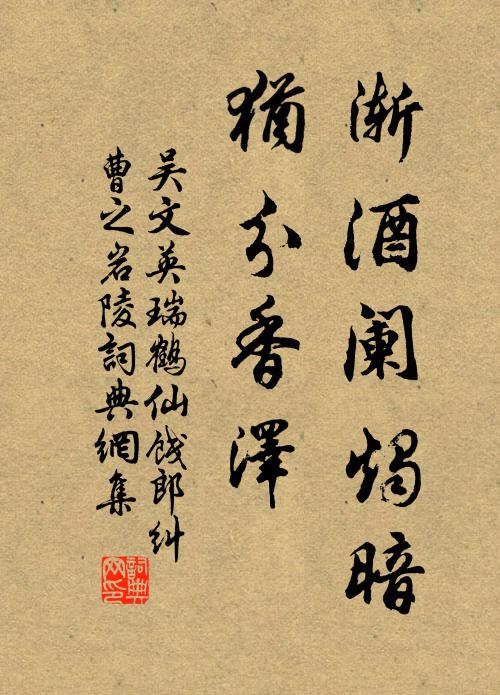 渐酒阑烛暗
犹分香澤
吴文英瑞鶴仙餞郎纠
曹之岩陵詞典網集
詞典
网印